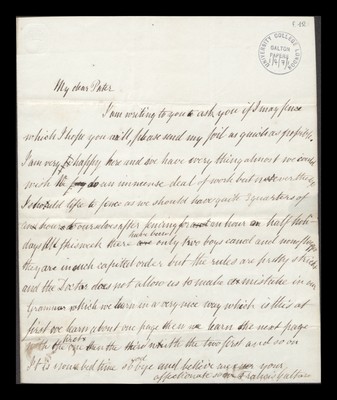 UNIVERSITY COLLEGE LONDON
GALTON PAPERS
My dear Pater
I am writing to you to ask you if I may fence
which I hope you will, please send my foil as quick as possible.
I am very happy here and we have every thing almost we could
wish to do an immense deal of work but nevertheless
I should like to fence as we should have quite 3 quarters of
an hour to ourselves after fencing for an hour on half holi-
days. All this week there have been only two boys caned and none flogged
they are in such capital order but the rules are pretty strict
and the Doctor does not allow us to make a mistake in my
Grammar which we learn in a very nice way which is this at
first we learn about one page then we learn the next page
with the first then the third with the two first and so on
It is now bed time so good bye and believe me your
affectionate son Francis Galton